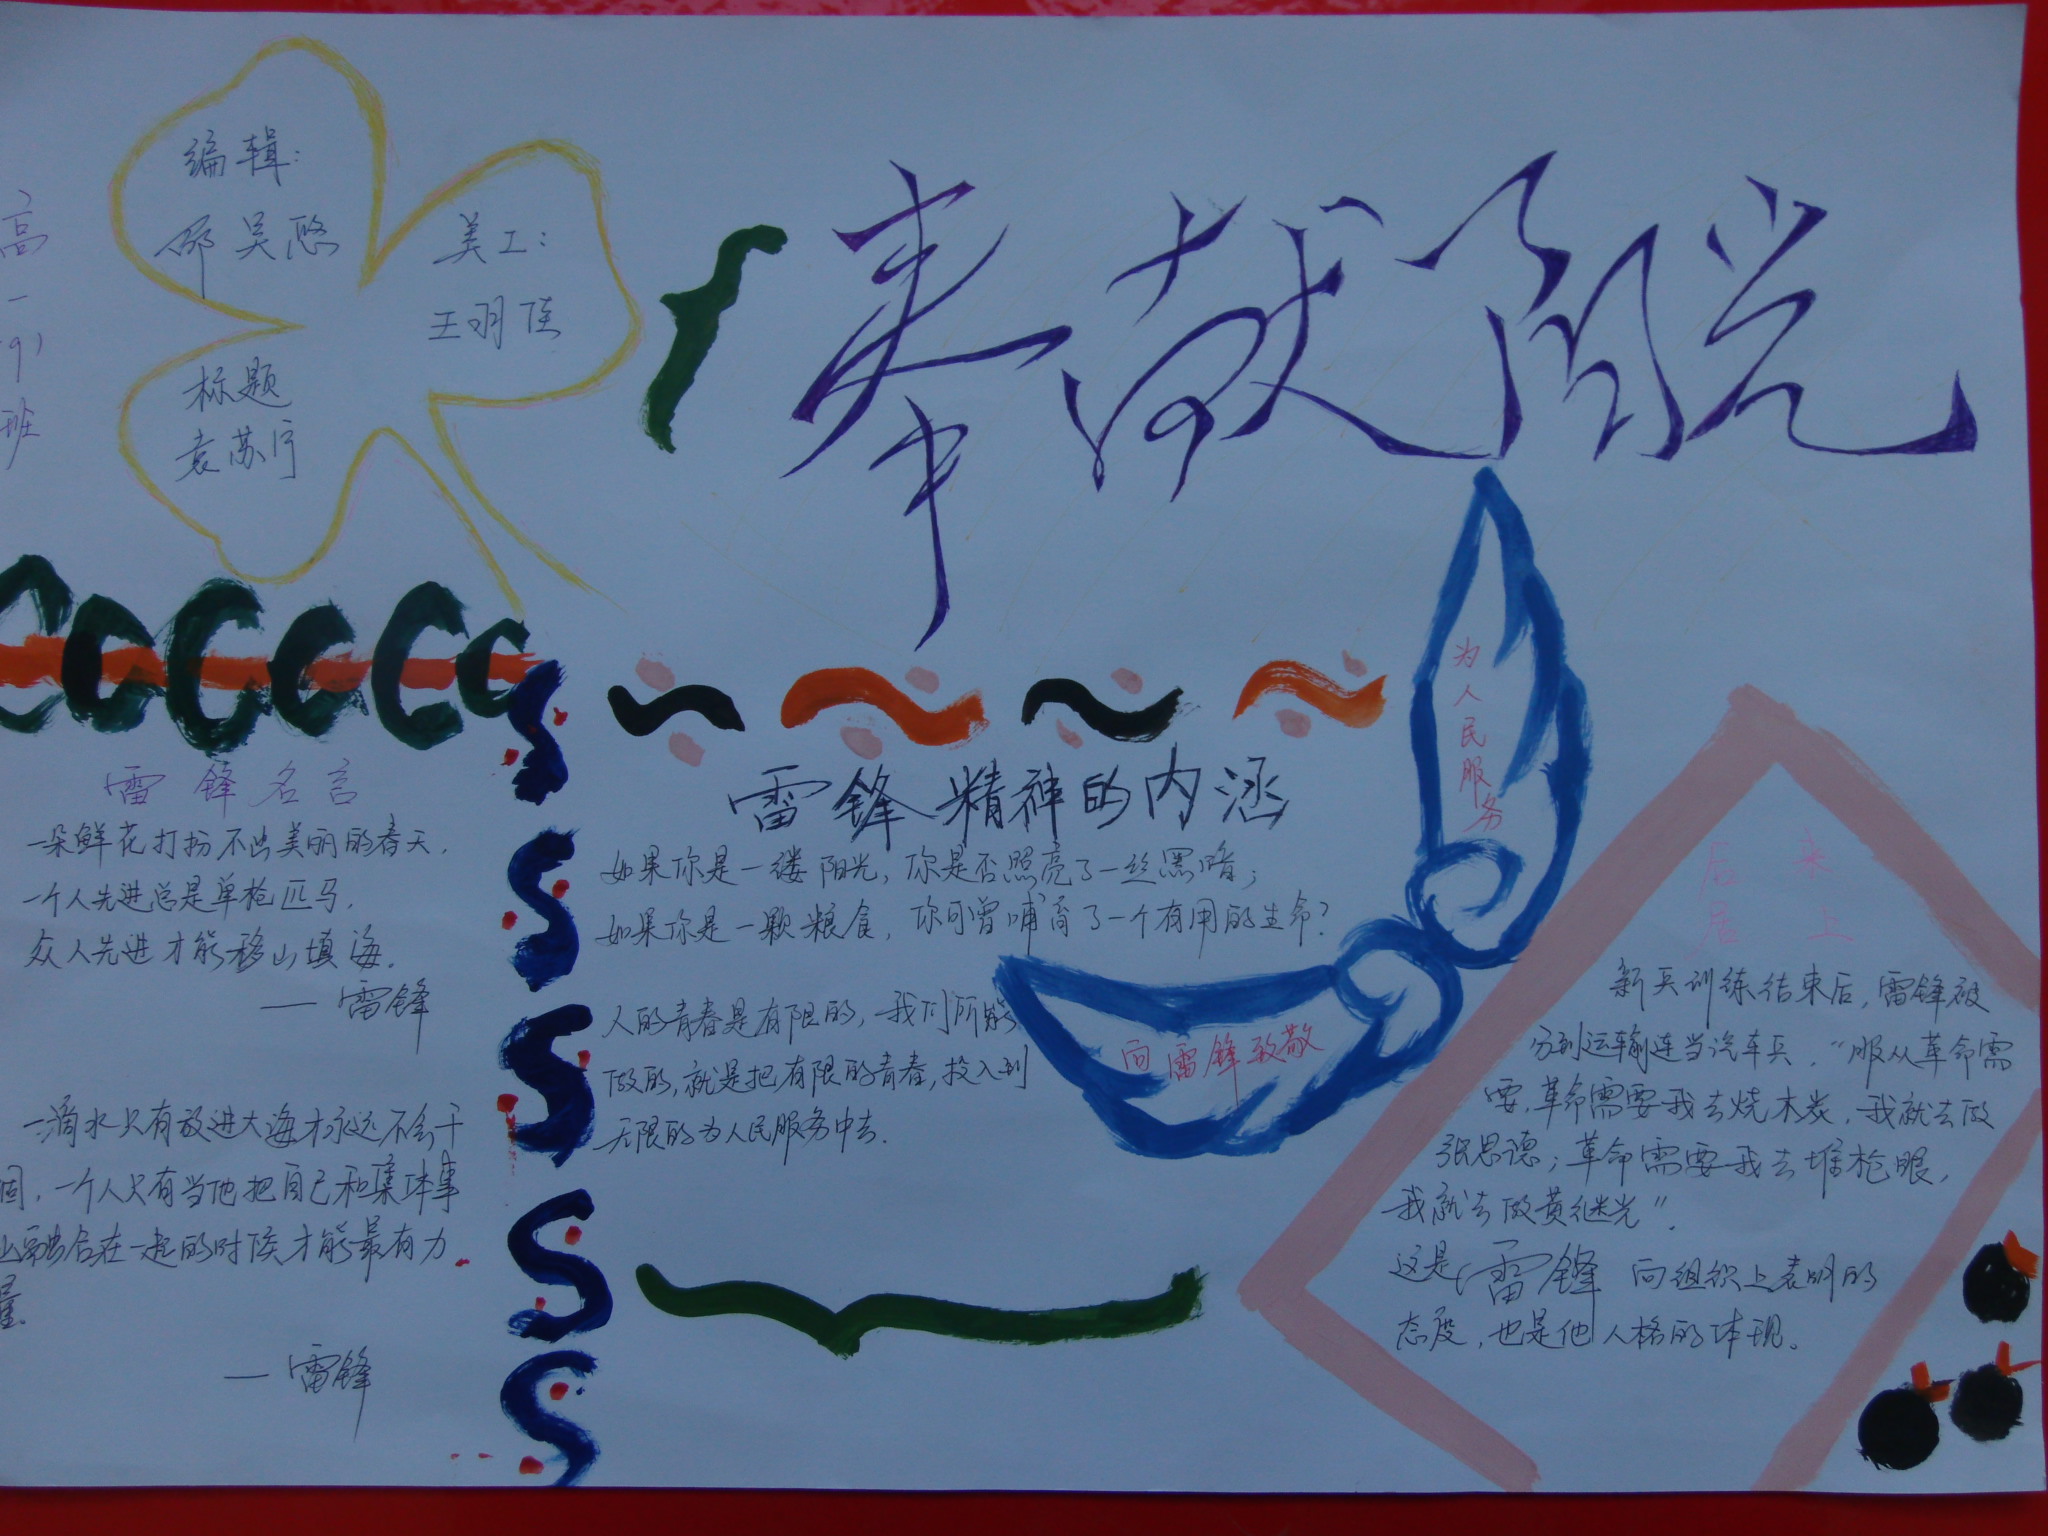 奉献阳光
高一(9)班
编辑:
邵昊悠
美工:
王羽佳
标题
袁苏宁
雷锋名言
一朵鲜花打扮不出美丽的春天,
一个人先进总是单枪匹马,
众人先进才能移山填海.
— 雷锋
一滴水只有放进大海才永远不会干
涸,一个人只有当他把自己和集体事
业融合在一起的时候才能最有力
量.
— 雷锋
雷锋精神的内涵
如果你是一缕阳光,你是否照亮了一丝黑暗;
如果你是一颗粮食,你可曾哺育了一个有用的生命?
人的青春是有限的,我们所能
做的,就是把有限的青春,投入到
无限的为人民服务中去.
为人民服务
向雷锋致敬
后来
居上
新兵训练结束后,雷锋被
分到运输连当汽车兵.“服从革命需
要,革命需要我去烧木炭,我就去做
张思德;革命需要我去堆枪眼,
我就去做黄继光”.
这是雷锋向组织上表明的
态度,也是他人格的体现。